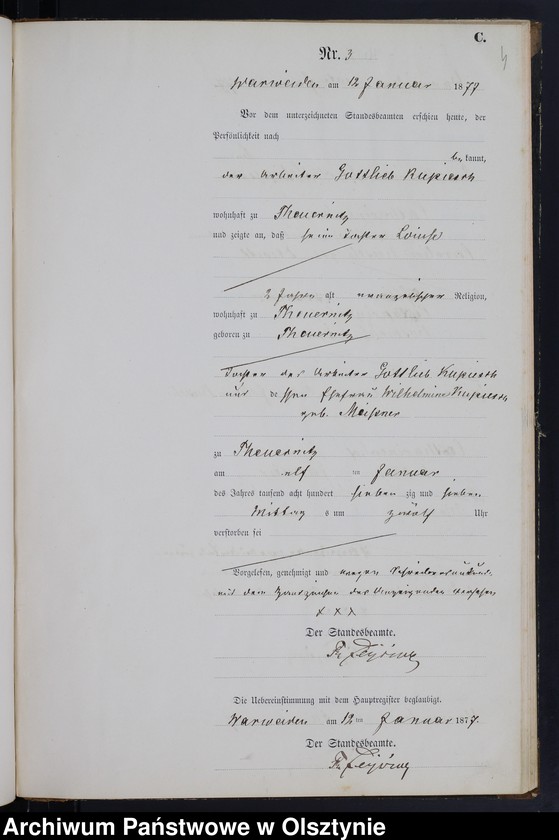 C.
4
Nr. 3
Warweiden am 12 Januar 1877
Vor dem unterzeichneten Standesbeamten erschien heute, der
Persönlichkeit nach
be kannt,
der Arbeiter Gottlieb Kupiesch
wohnhaft zu Theuernitz
und zeigte an, daß seine Tochter Louise
2 Jahre alt evangelischer Religion,
wohnhaft zu Theuernitz
geboren zu Theuernitz
Tochter des Arbeiter Gottlieb Kupiesch
und dessen Ehefrau Wilhelmine Kupiesch
geb. Meißner
zu Theuernitz
am elf ten Januar
des Jahres tausend acht hundert sieben zig und sieben
Mittag s um zwölf Uhr
verstorben sei
Vorgelesen, genehmigt und wegen
mit dem Handzeichen des Anzeigenden versehen
x x x
Der Standesbeamte.
Die Uebereinstimmung mit dem Hauptregister beglaubigt.
Warweiden am 12 ten Januar 1877.
Der Standesbeamte.
Archiwum Państwowe w Olsztynie